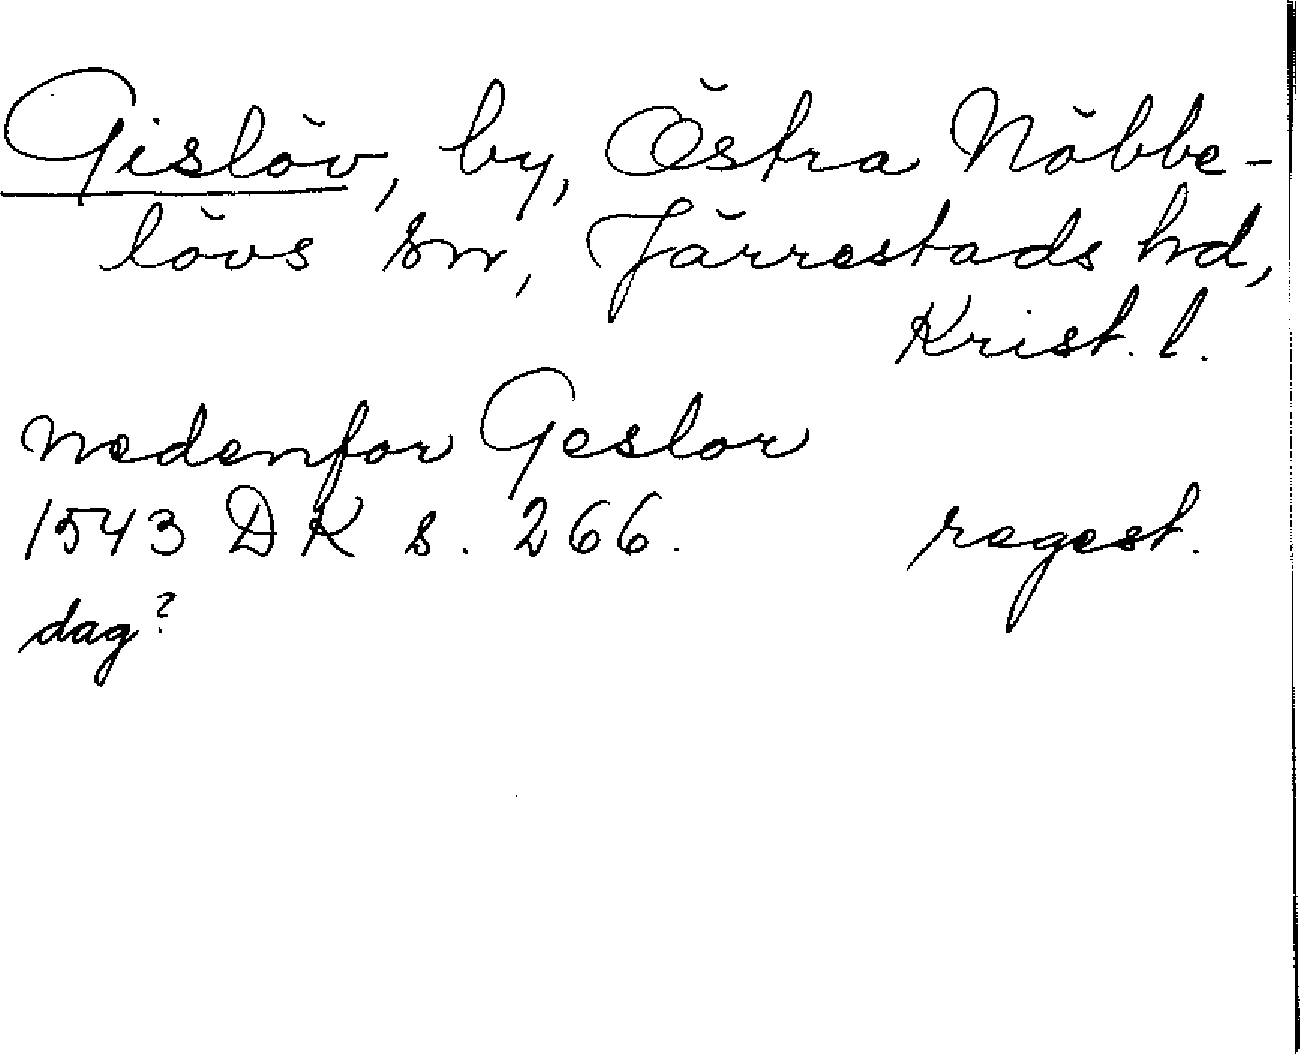 Gislöv, by, Östra Nöbbe-
lövs sn, Järrestads hd,
Krist. l.
nedenfor Geslor
1543 DK s. 266. regest.
dag?